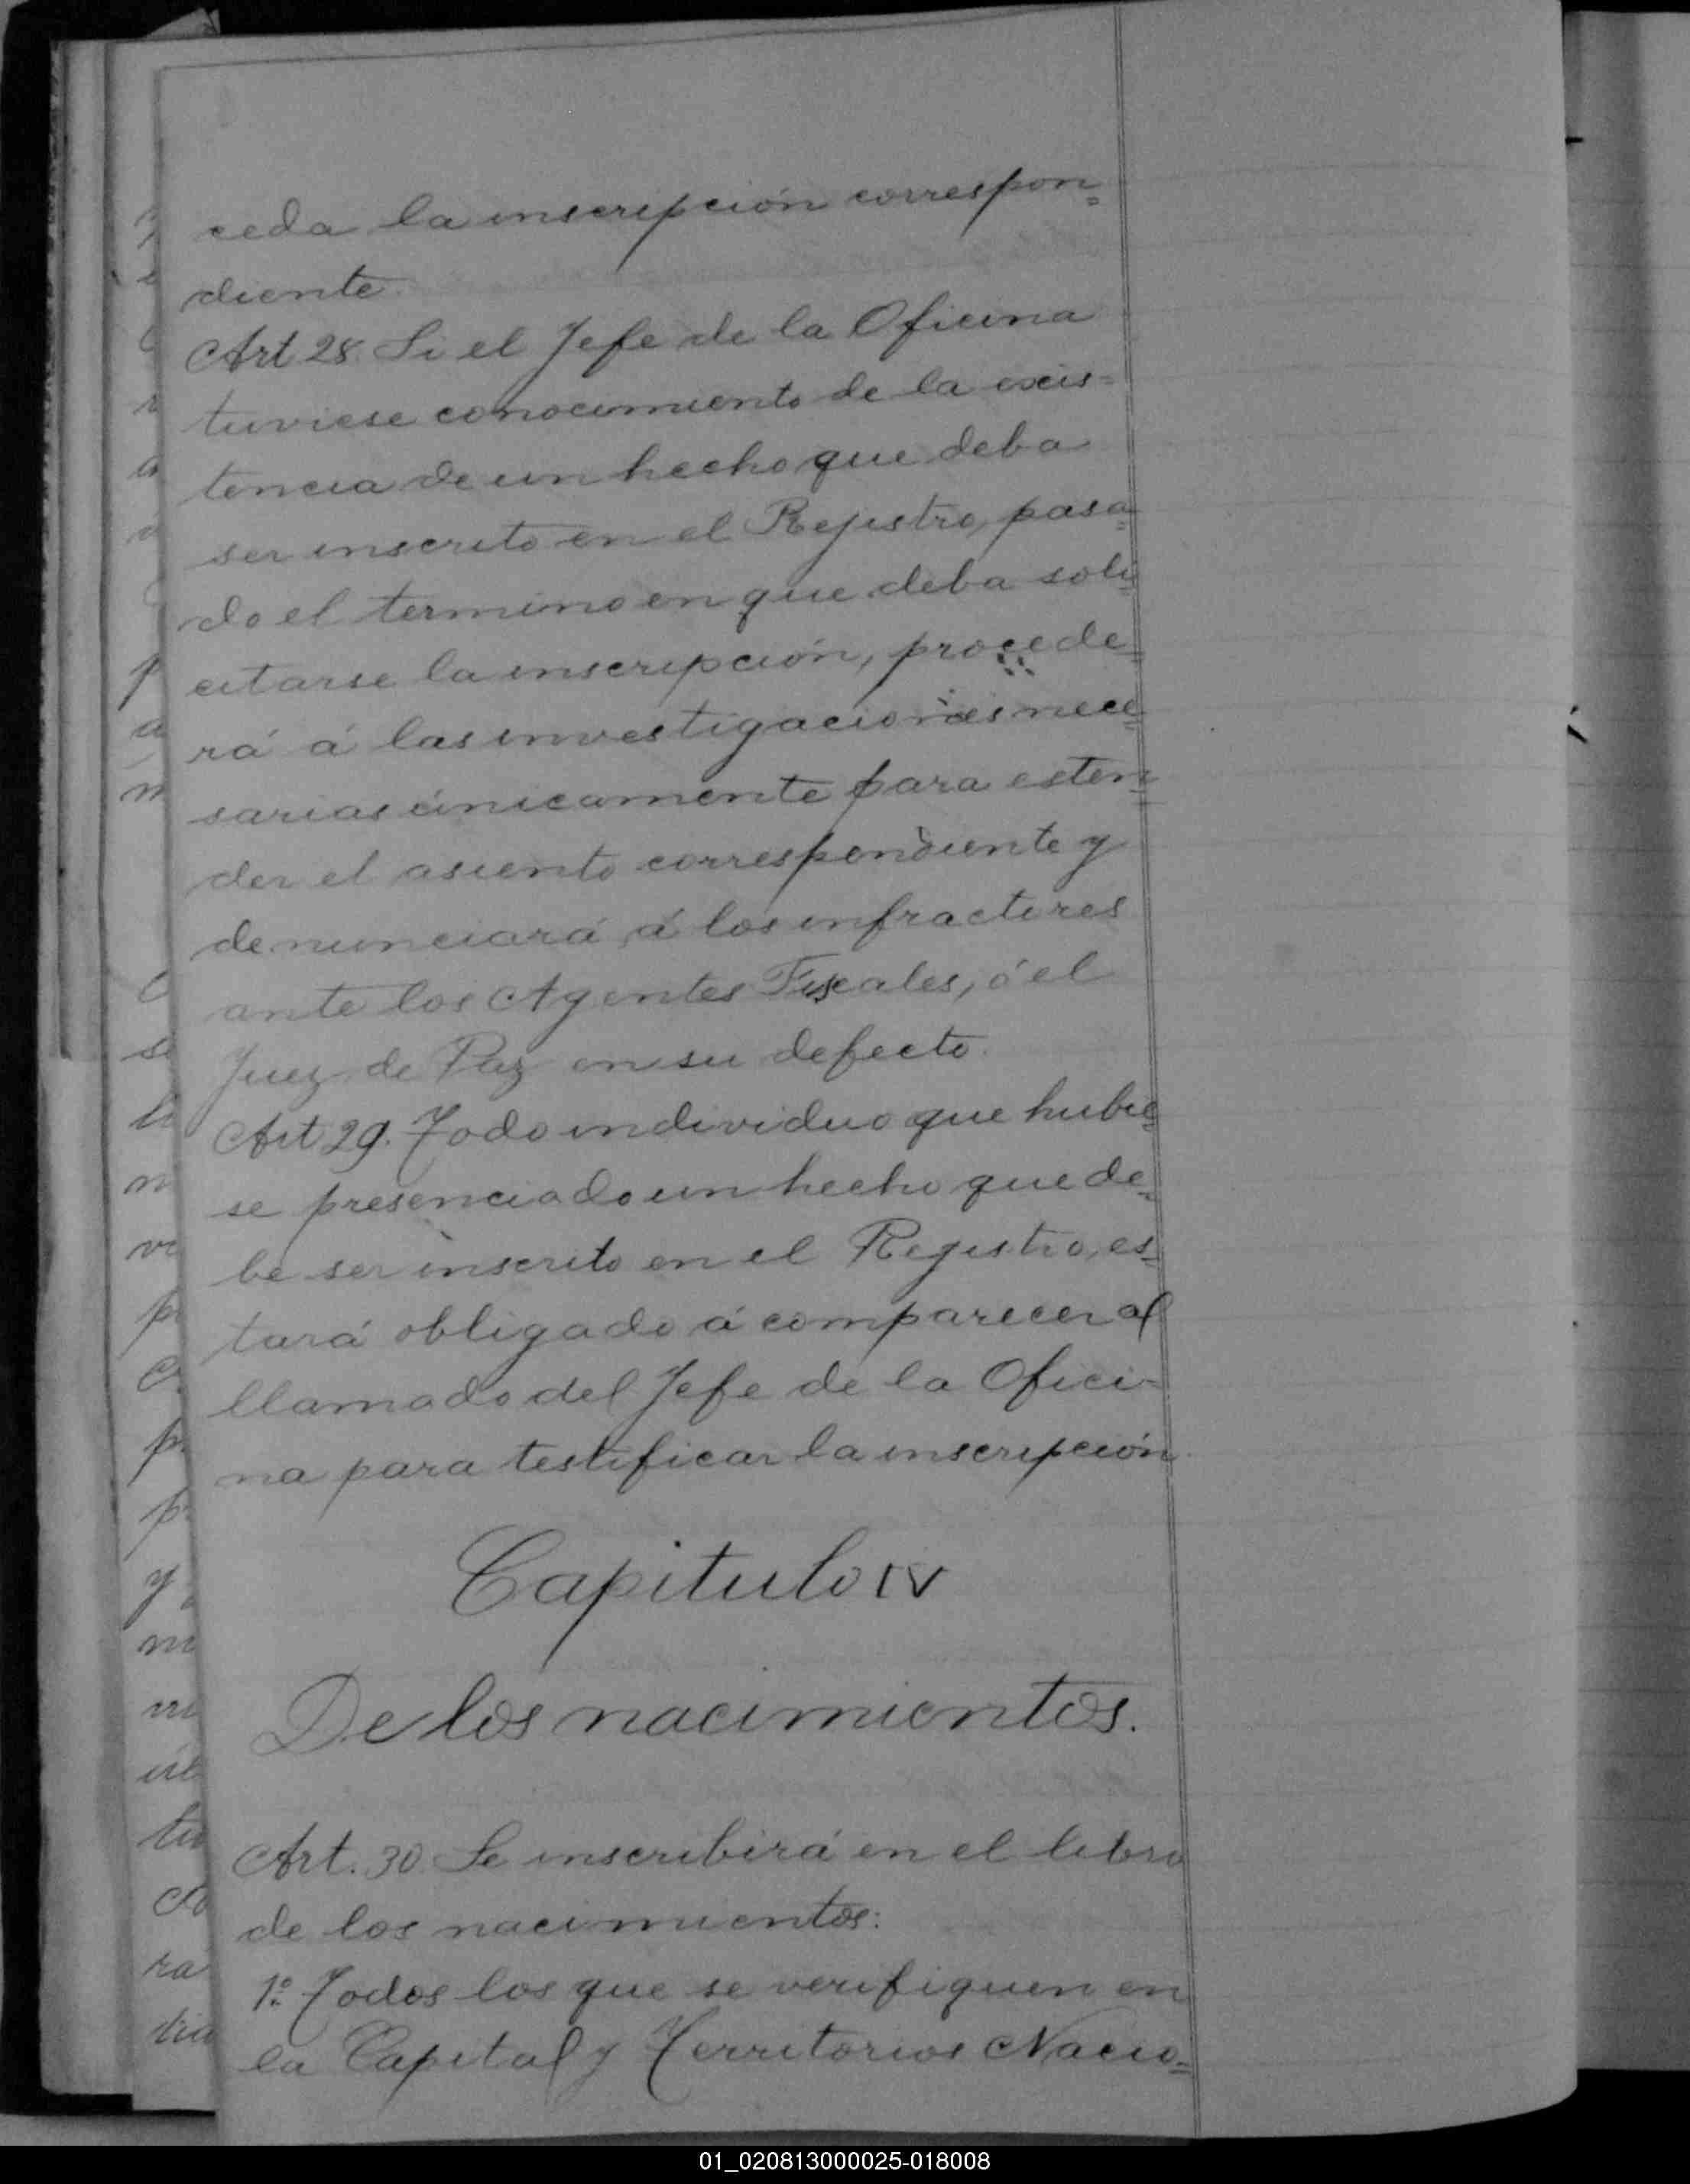 ceda la inscripción correspon=
diente.
Art 28. Si el Jefe de la Oficina
tuviese conocimiento de la exis=
tencia de un hecho que deba
ser inscrito en el Rejistro, pasa=
do el termino en que deba soli=
citarse la inscripción, procede=
rá á las investigaciones nece=
sarias únicamente para esten=
der el asiento correspondiente y
denunciará á los infractores
ante los Agentes Fiscales, ó el
Juez de Paz en su defecto.
Art 29. Todo individuo que hubie=
se presenciado un hecho que de=
be ser inscrito en el Rejistro, es=
tará obligado á comparecer al
llamado del Jefe de la Ofici-
na para testificar la inscripción
Capitulo IV
De los nacimientos.
Art. 30 Se inscribirá en el libro
de los nacimientos:
1º Todos los que se verifiquen en
la Capital y Territorios Nacio=
01_020813000025-018008